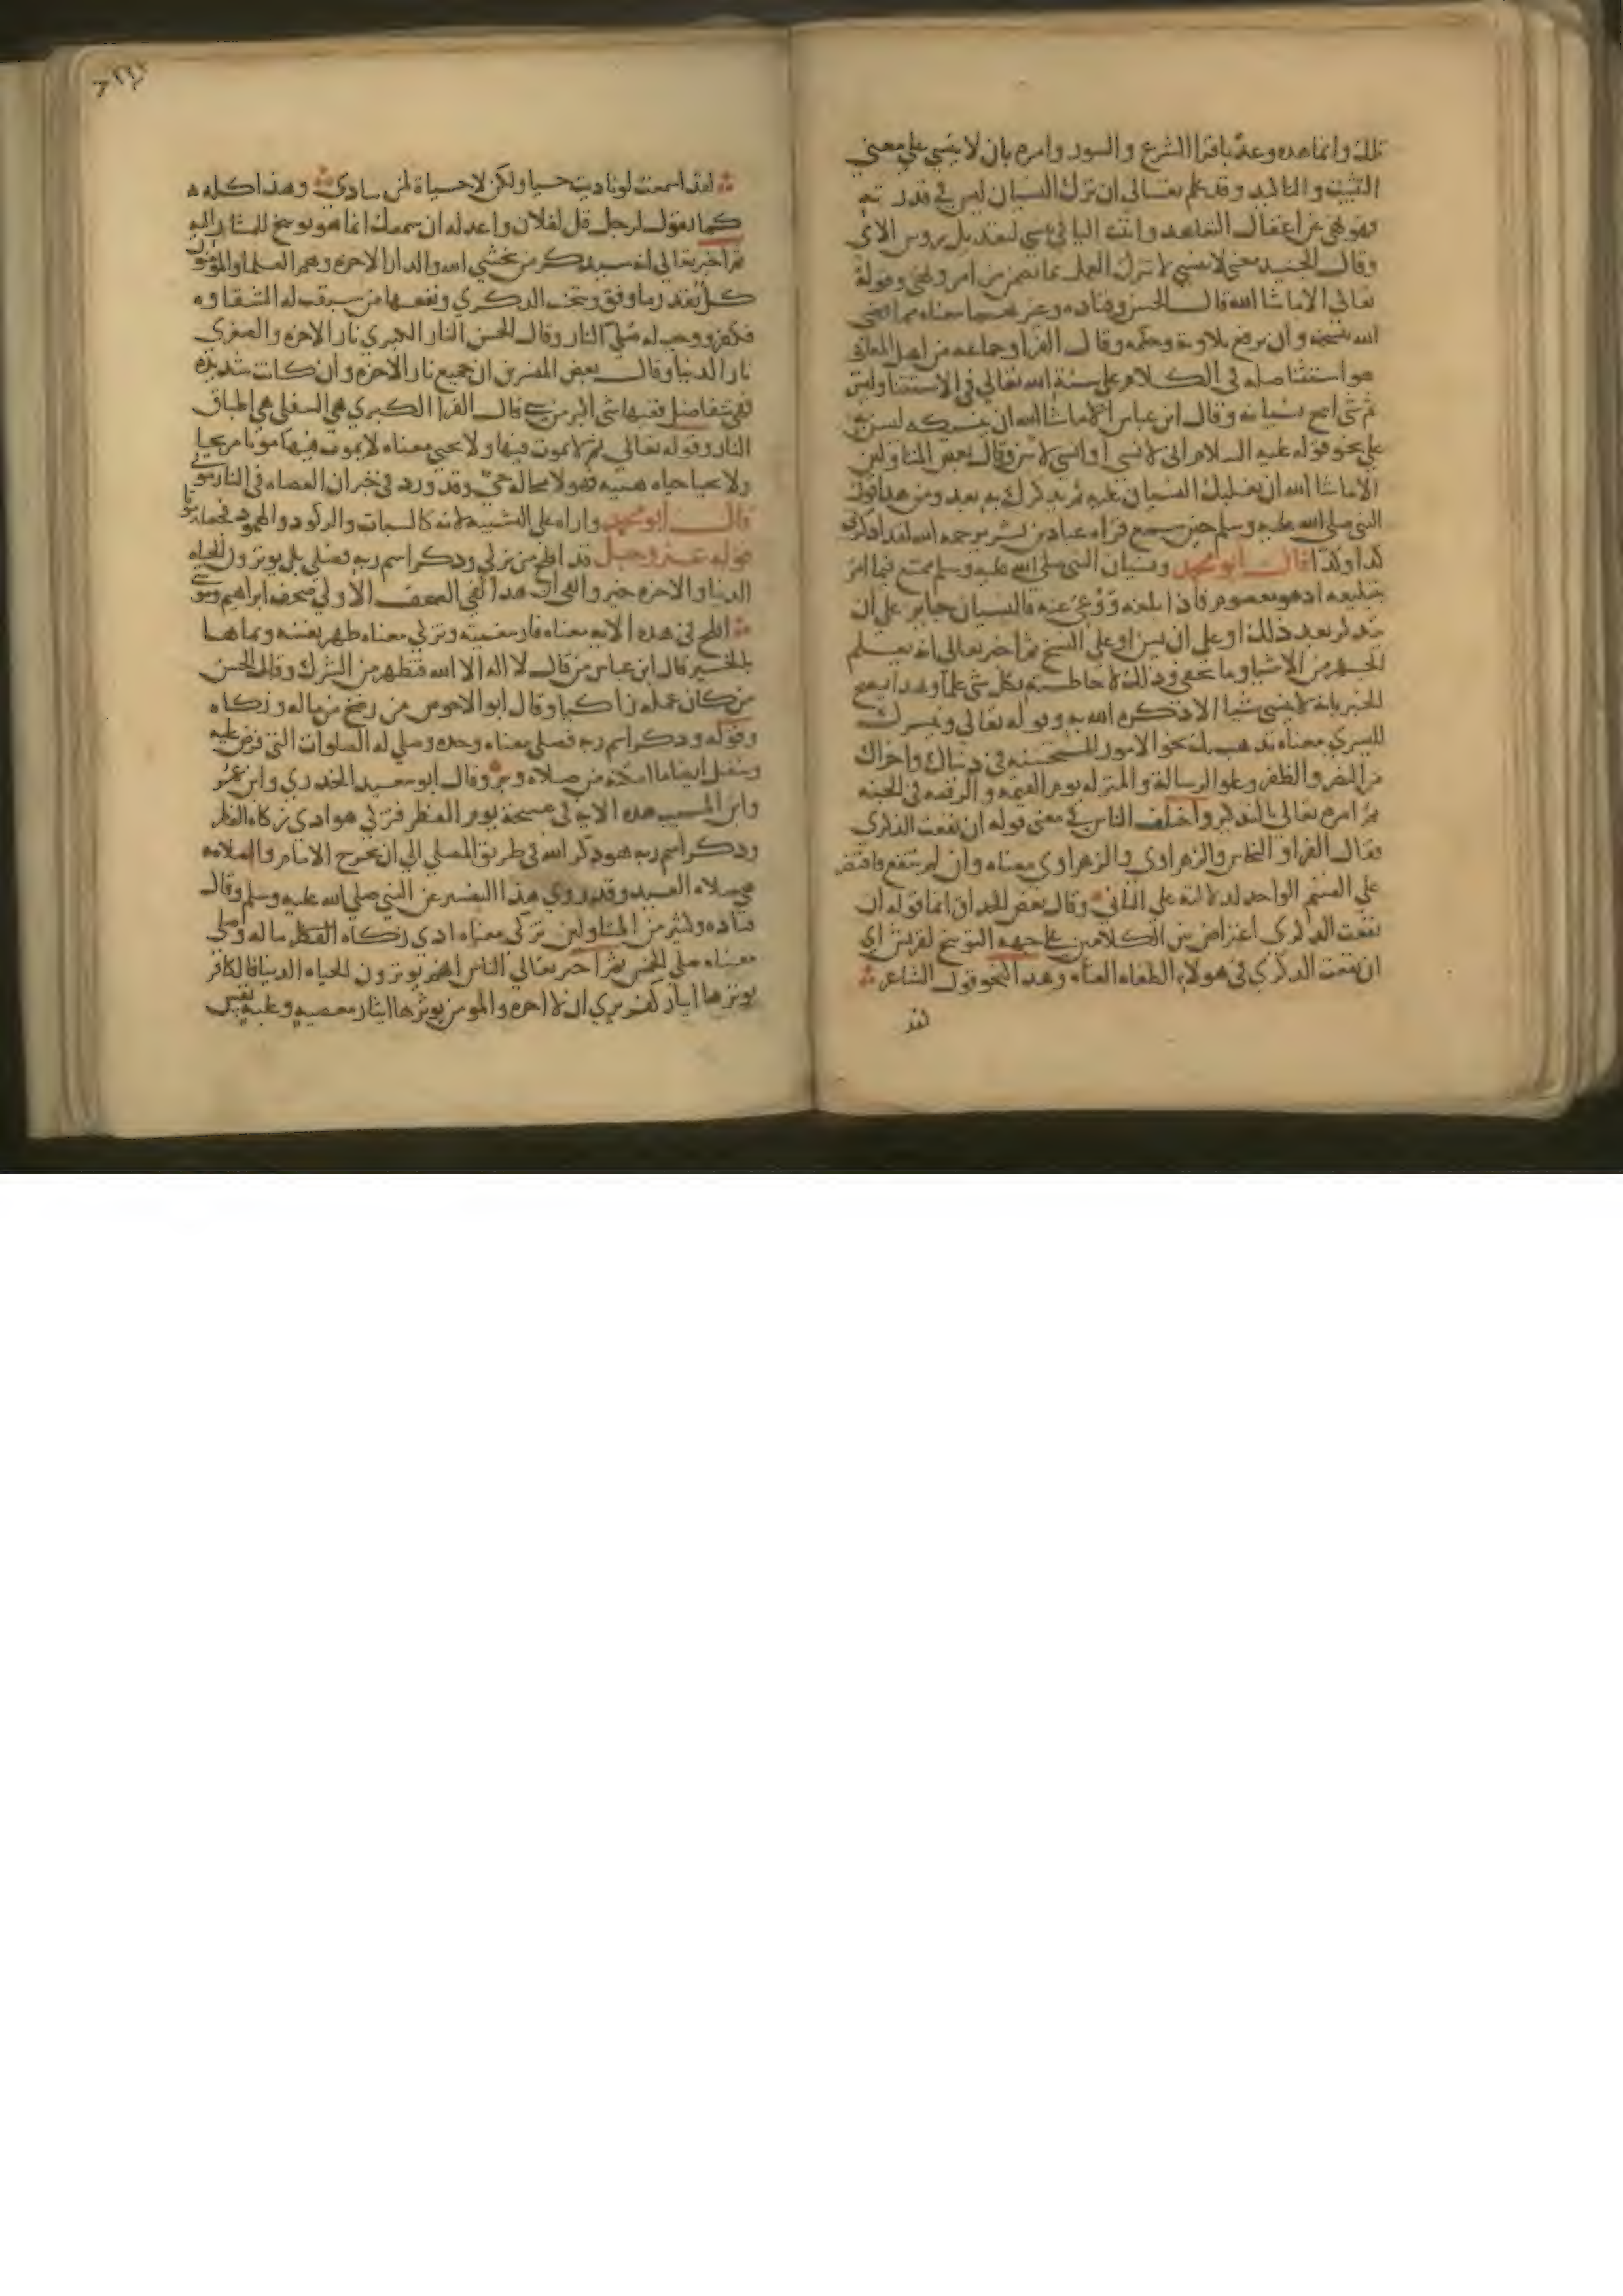 ذلك وانما هده وعد باقرا الشرع والسور وامره بان لا ينسي علي معني
التثبيت والتاكيد وقد علم تعالي ان ترك النسيان ليس في قدرته
فهو نهي عن اغفال التعاهد واثبت اليا في تنسي لتعديل روس الاي
وقال الجنيد معني لا تنسي لا تترك العمل بما تضمن من امر ونهي وقوله
تعالي الا ما شا الله قال الحسن وقتاده وغيرهما معناه مما قضي
الله نسخه وان يرفع تلاوته وحكمه وقال الفرا وجماعه من اهل المعاني
هو استثنا صله في الكلام علي سنة الله تعالي في الاستثنا وليس
ثم شي ابيح نسيانه وقال ابن عباس الا ما شا الله ان ينسيكه لتسن به
علي نحو قوله عليه السلام اني لانسي او انسي لاسن وقال بعض المتاولين
الا ما شا الله ان يغلبك النسيان عليه ثم يذكرك به بعد ومن هذا قول
النبي صلي الله عليه وسلم حين سمع قراه عباد بن بشر يرحمه الله لقد اذكرني
كذا وكذا قال ابو محمد ونسيان النبي صلي الله عليه وسلم ممتنع فيما امر
بتبليغه اذ هو معصوم فاذا بلغه ووعي عنه فالنسيان جايز علي ان
يتذكر بعد ذلك او علي ان يسن او علي النسخ ثم اخبر تعالي انه يعلم
الجهر من الاشيا وما يخفي وذلك لاحاطته بكل شي علما وهذا يصح
الخبر بانه لا ينسي شيا الا ذكره الله به وقوله تعالي ونيسرك
لليسري معناه نذهب بك نحو الامور المستحسنه في دنياك واخراك
من النصر والظفر وعلو الرسالة والمنزله يوم القيمه والرفعه في الجنه
ثم امره تعالي بالتذكير واختلف الناس في معني قوله ان نفعت الذكري
فقال الفرا والنحاس والزهراوي والزهراوي معناه وان لم تنفع فاقتصر
علي القسم الواحد لدلالته علي الثاني وقال بعض الحذاق انما قوله ان
نفعت الذكري اعتراض بين الكلامين علي جهه التوبيخ لقريش اي
ان نفعت الذكري في هولاء الطغاه العتاه وهذا النحو قول الشاعر
لقد
لقد اسمعت لو ناديت حيا ولكن لا حياة لمن تنادي وهذا كله
كما تقول لرجل قل لفلان واعد له ان سمعك انما هو توبيخ للمشار اليه
ثم اخبر تعالي انه سيذكر من يخشي الله والدار الاخره وهم العلما والمومنون
كل بقدر ما وفق ويتجنب الذكري ونفعها من سبقت له الشقاوه
فكفر ووجب له صلي النار وقال الحسن النار الكبري نار الاخره والصغري
نار الدنيا وقال بعض المفسرين ان جميع نار الاخره وان كانت شديده
فهي تتفاضل ففيها شي اكبر من شي قال الفرا الكبري هي السفلي من اطباق
النار وقوله تعالي ثم لا يموت فيها ولا يحيي معناه لا يموت فيها موتا مريحا
ولا يحيا حياه هنيه فهو لا محاله حي وقد ورد في خبر ان العصاه في النار موتي
قال ابو محمد واراه علي التشبيه لانه كالسبات والركود والهمود فجعله موتا
قوله عز وجل قد افلح من تزكي وذكر اسم ربه فصلي بل يوثرون الحياه
الدنيا والاخره خير وابقي ان هذا لفي الصحف الاولي صحف ابراهيم وموسي
افلح في هذه الايه معناه فاز ببغيته وتزكي معناه طهر نفسه ونماها
بالخير قال ابن عباس من قال لا اله الا الله فتطهر من الشرك وقال الحسن
من كان عمله زاكيا وقال ابو الاحوص من رضخ من ماله وزكاه
وقوله وذكر اسم ربه فصلي معناه وحده وصلي له الصلوات التي فرض عليه
وتنفل ايضا ما امكنه من صلاه وبر وقال ابو سعيد الخدري وابن عمر
وابن المسيب هذه الايه في صبيحة يوم الفطر فتزكي هو ادي زكاه الفطر
وذكر اسم ربه هو ذكر الله في طريق المصلي الي ان يخرج الامام والصلاه
هي صلاه العيد وقد روي هذا التفسير عن النبي صلي الله عليه وسلم وقال
قتاده وكثير من المتاولين تزكي معناه ادي زكاه ماله وصلي
معناه صلي الخمس ثم اخبر تعالي الناس انهم يوثرون الحياه الدنيا فالكافر
يوثرها ايثار كفر يري ان لا اخره والمومن يوثرها ايثار معصيه وغلبه نفس